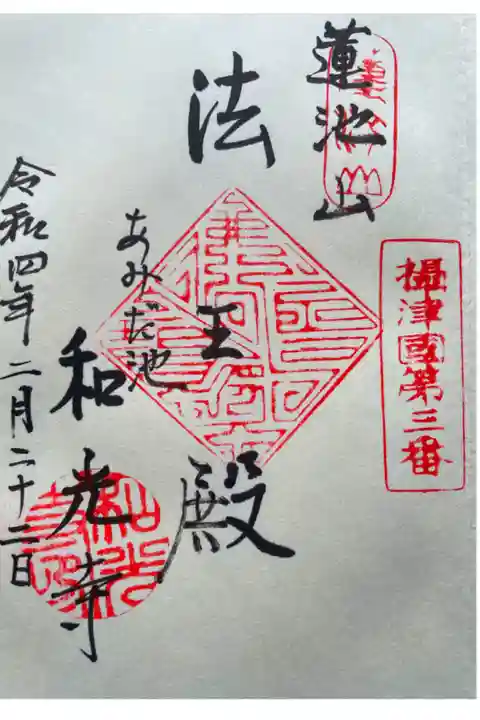 蓮池山
摂津國第三番
法王殿
あみだ池
和光寺
令和四年二月二十二日